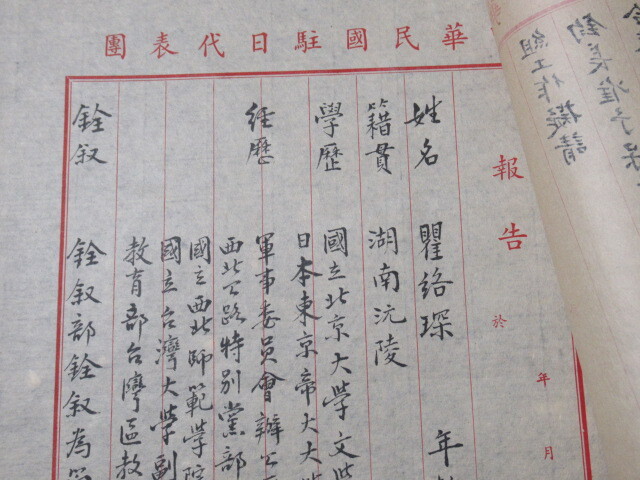 鈞長准予
組工作擬請
華民國駐日代表團
報告
於
年月
姓名 瞿絡琛 年
籍貫 湖南沅陵
學歷 國立北京大學文
日本東京帝大大
經歷 軍事委員會辦公
西北公路特別黨部
國立西北師範學院
國立台灣大學副
教育部台灣區教
銓叙 銓叙部銓叙為